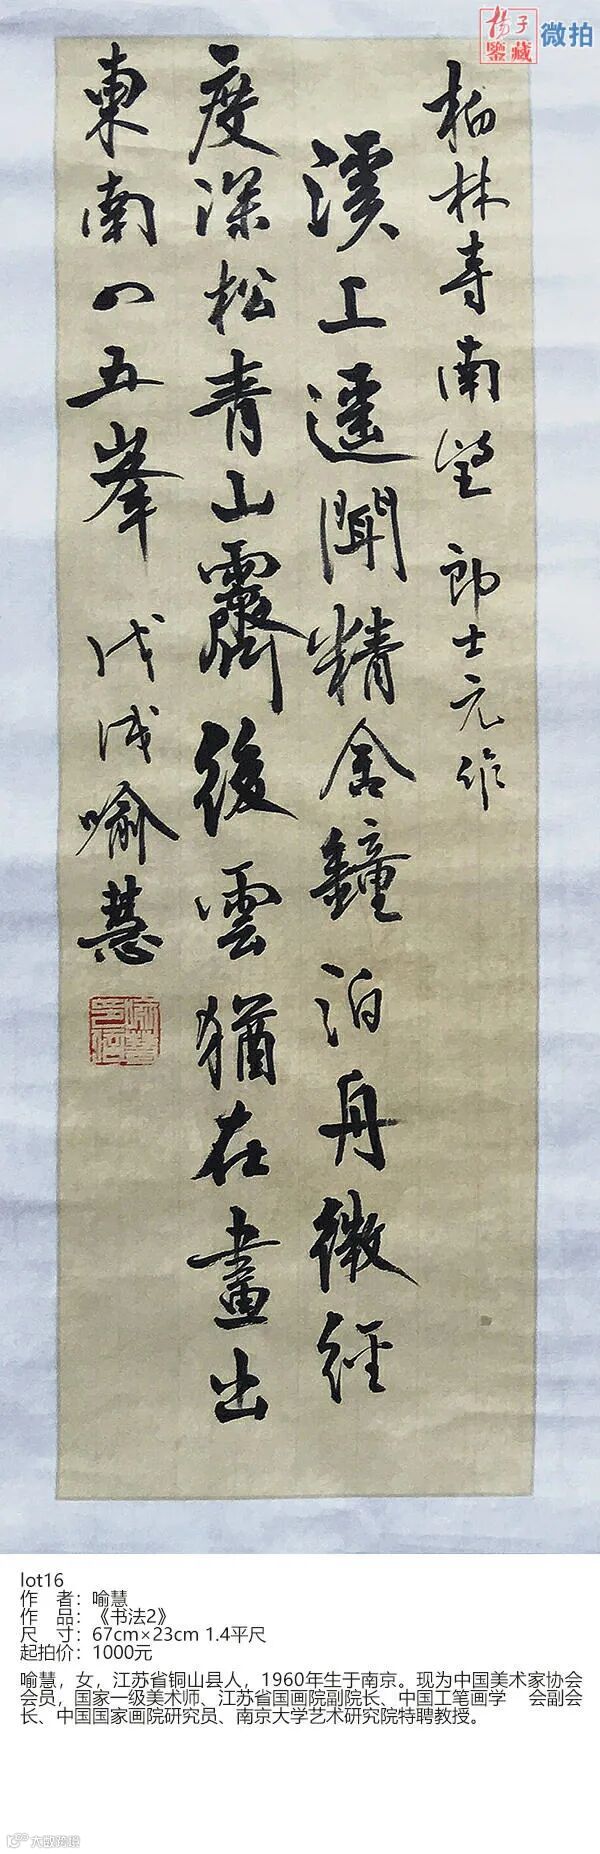 揚子
鑒藏
微拍
柏林寺南望 郎士元作
溪上遥聞精舍鐘泊舟微徑
度深松青山霽後雲猶在畫出
東南四五峯 戊戌喻慧
lot16
作 者：喻慧
作 品：《书法2》
尺 寸：67cm×23cm 1.4平尺
起拍价：1000元
喻慧，女，江苏省铜山县人，1960年生于南京。现为中国美术家协会
会员，国家一级美术师、江苏省国画院副院长、中国工笔画学 会副会
长、中国国家画院研究员、南京大学艺术研究院特聘教授。